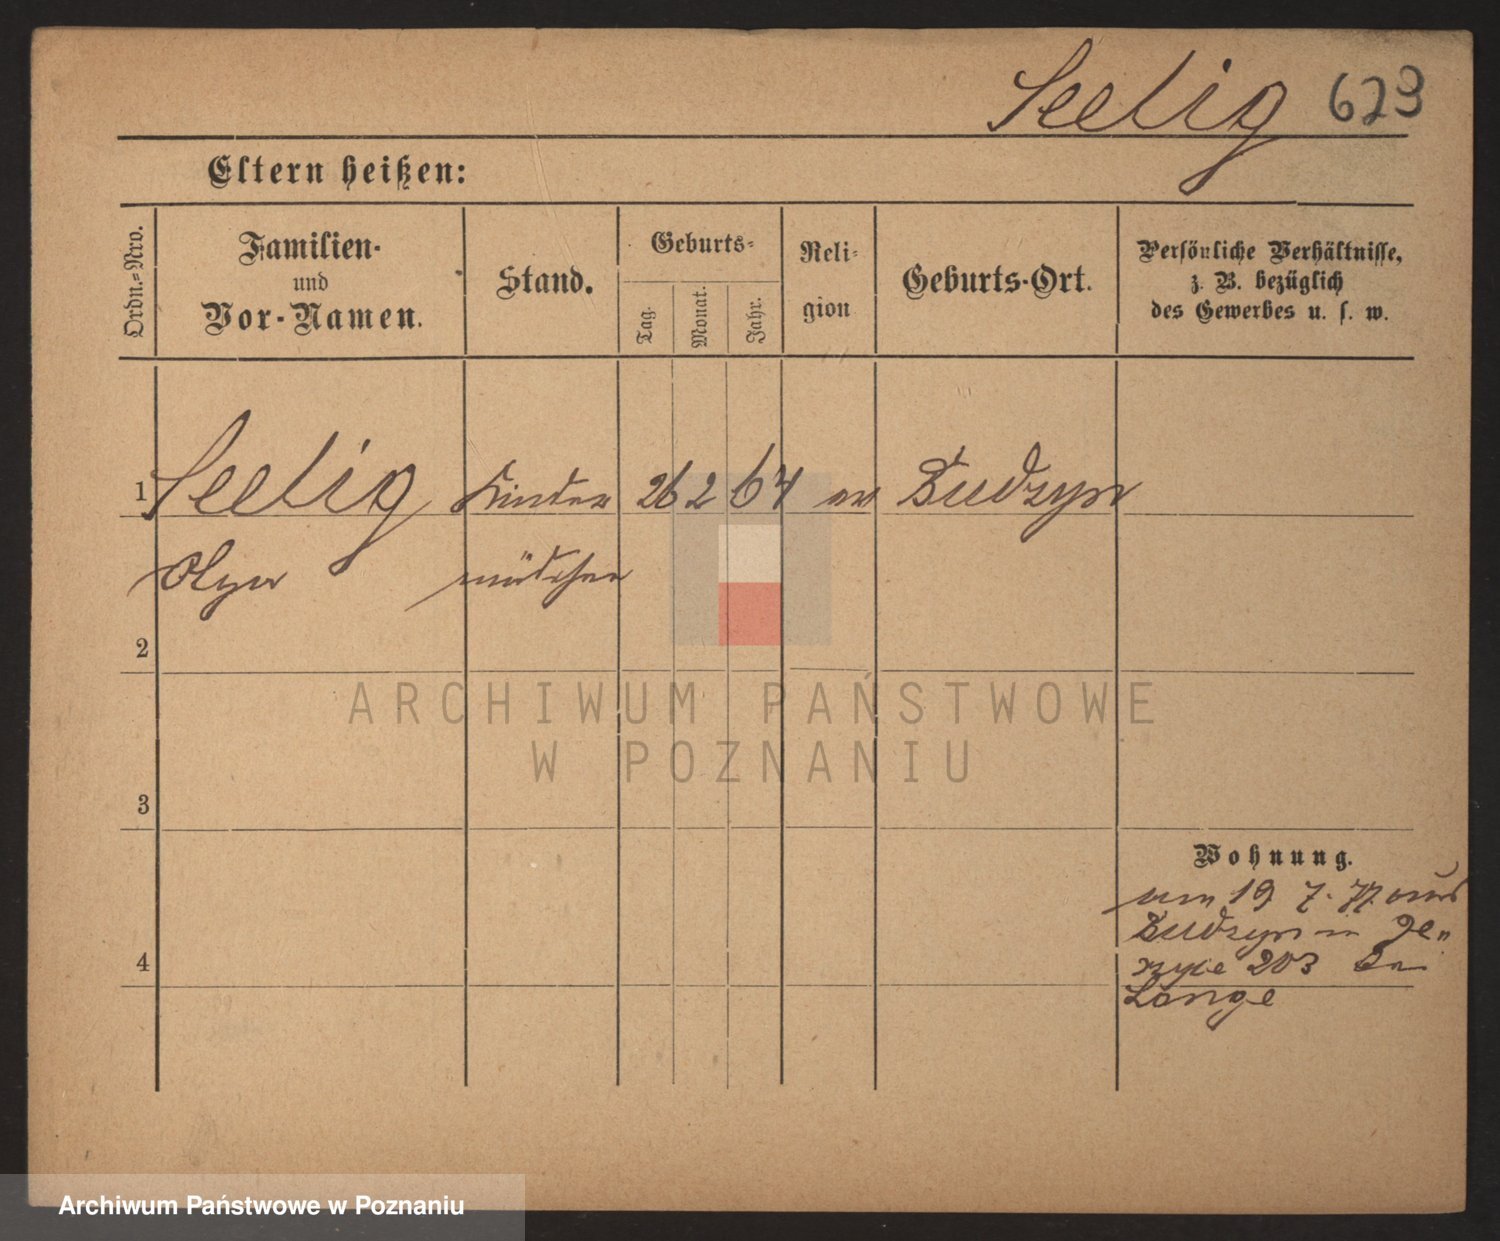 Seelig 623
Eltern heißen:
Ordn.=Nro.
Familien-
und
Vor-Namen.
Stand.
Geburts=
Tag.
Monat.
Jahr.
Reli=
gion
Geburts-Ort.
Persönliche Verhältnisse,
z. B. bezüglich
des Gewerbes u. s. w.
1 Seelig Kinder 26 2 64 ev Budzyn
Olga mädchen
2
3
4
Wohnung.
am 19 7. 77. aus
Budzyn in Je„
rzyce 203 bei
Lange
ARCHIWUM PAŃSTWOWE
W POZNANIU
Archiwum Państwowe w Poznaniu